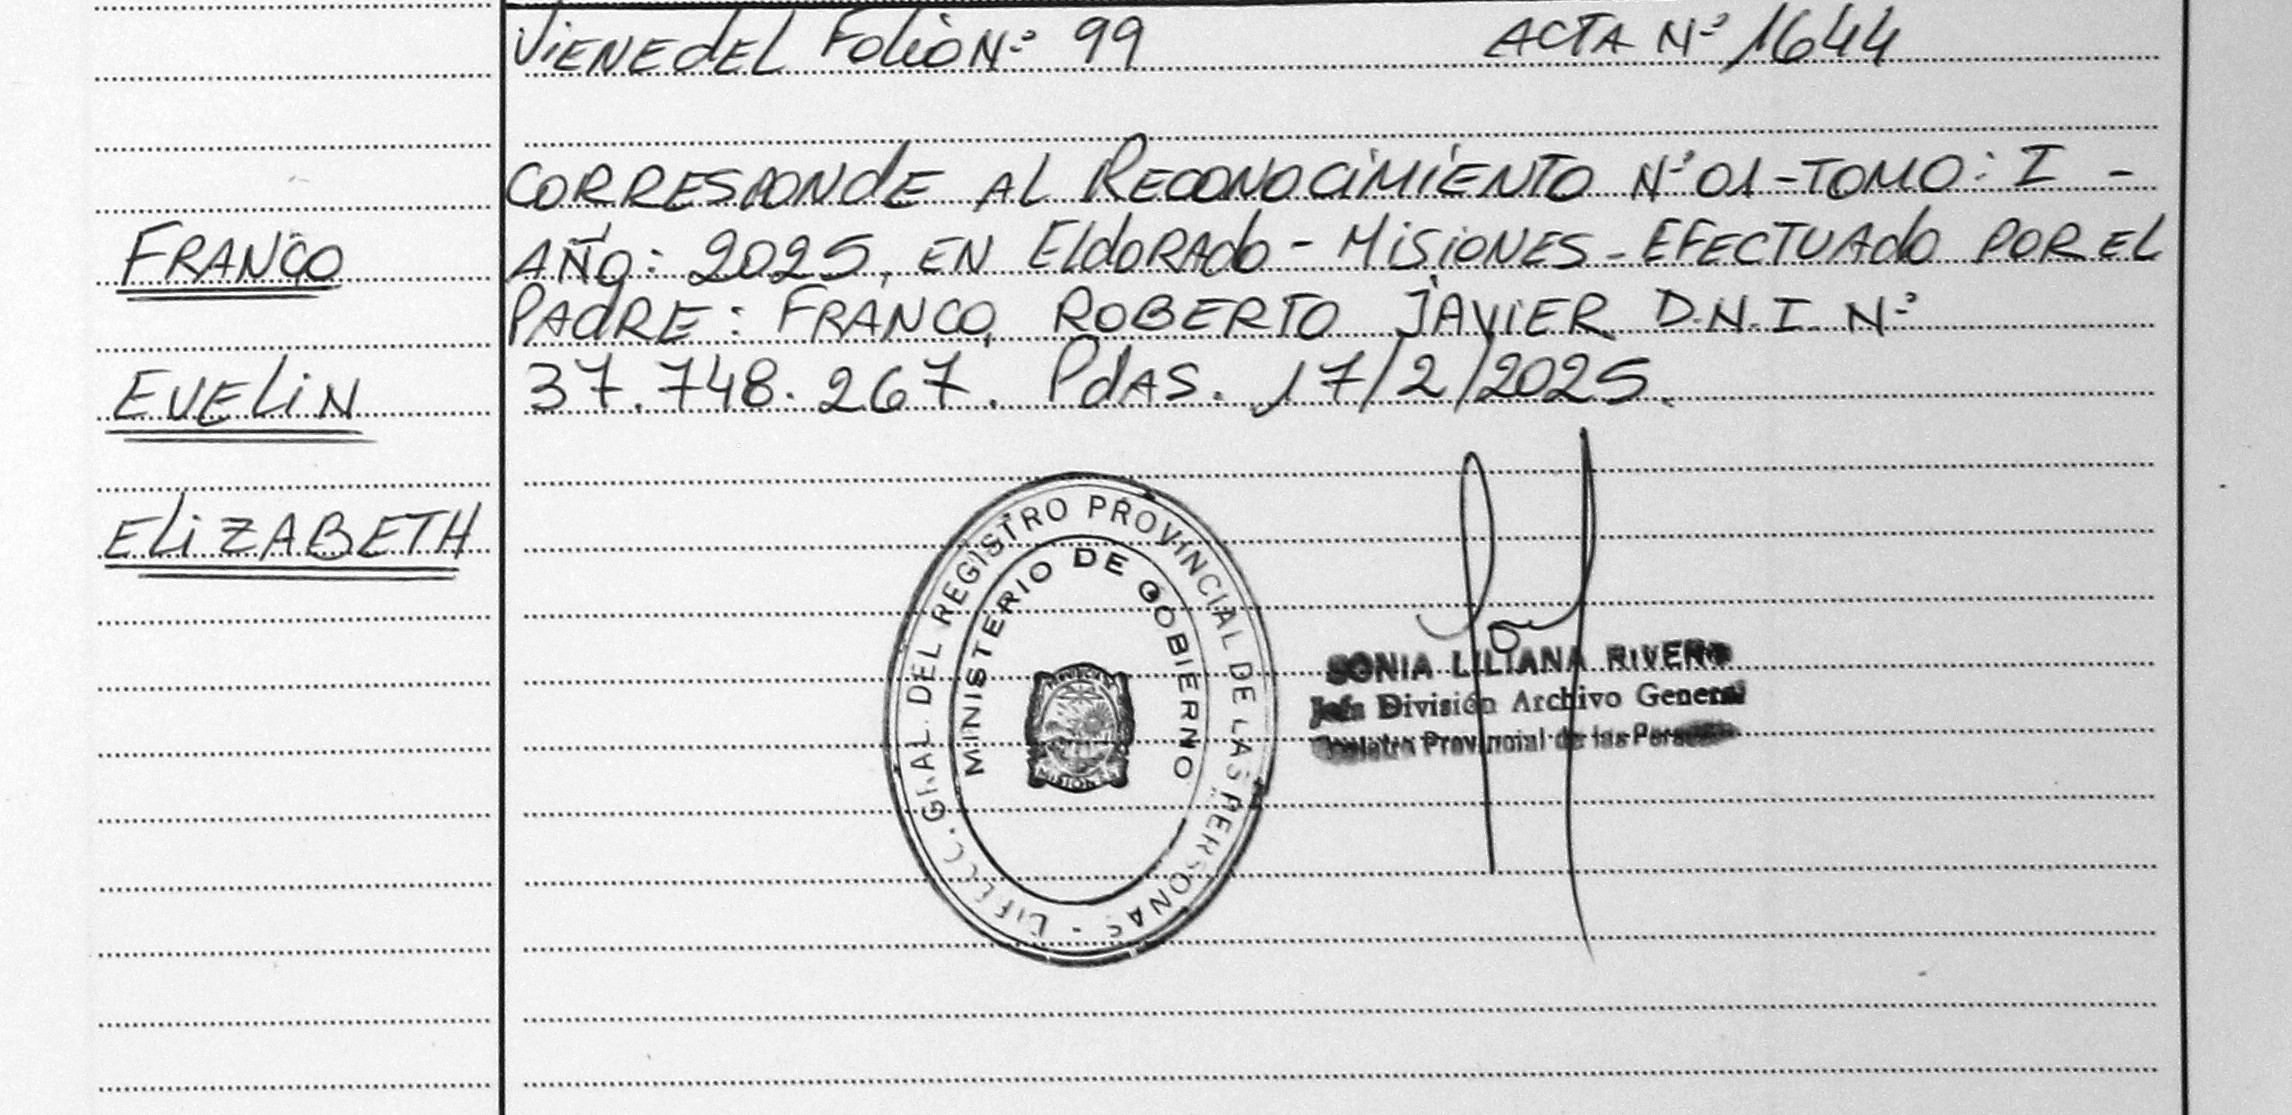 VIENE dEL FOLIO Nº 99 ACTA Nº 1644
CORRESPONDE AL RECONOCIMIENTO Nº 01-TOMO: I -
FRANCO
AÑO: 2025, EN ELdORAdO - MISIONES - EFECTUAdO POR EL
PAdRE: FRANCO, ROBERTO JAVIER D.N.I. Nº
EVELIN
37.748.267. PdAS. 17/2/2025.
ELIZABETH
GRAL. DEL REGISTRO PROVINCIAL DE LAS PERSONAS -
MINISTERIO DE GOBIERNO
MISIONES
SONIA LILIANA RIVERO
Jefa División Archivo General
Registro Provincial de las Personas